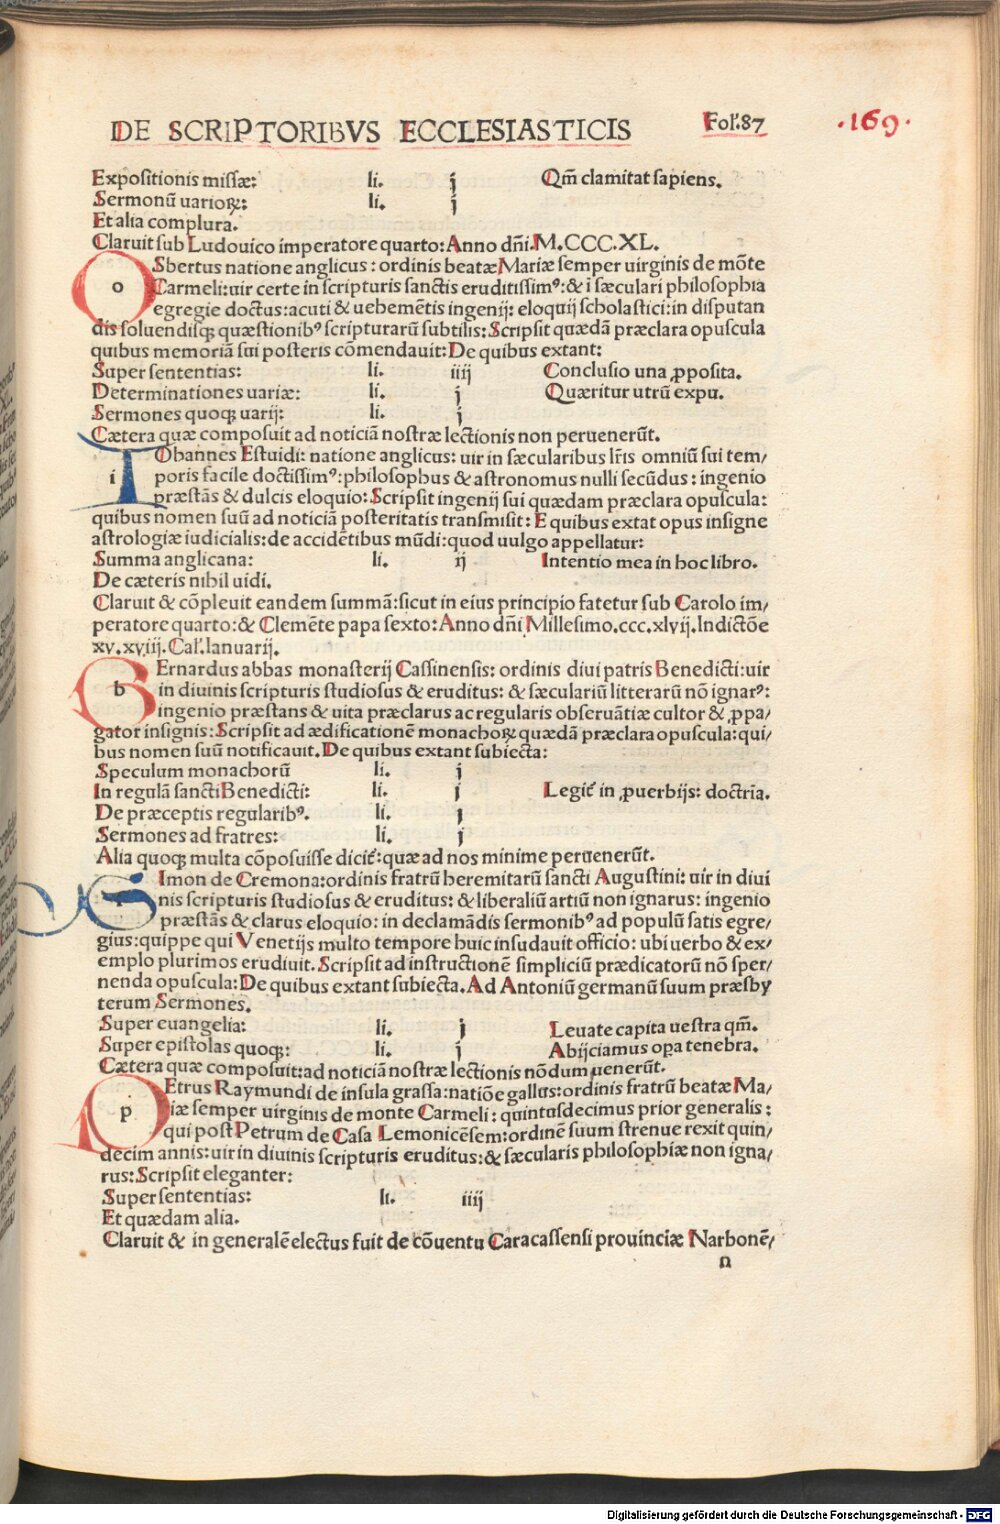 DE SCRIPTORIBVS ECCLESIASTICIS Fol.87 .169.
Expositionis missæ: li. j Qm̃ clamitat sapiens.
Sermonũ uarioꝝ: li. j
Et alia complura.
Claruit sub Ludouico imperatore quarto: Anno dñi. M.CCC.XL.
OSbertus natione anglicus: ordinis beatæ Mariæ semper uirginis de mõte
Carmeli: uir certe in scripturis sanctis eruditissimꝰ: & ĩ sæculari philosophia
egregie doctus: acuti & uehemẽtis ingenij: eloquij scholastici: in disputan
dis soluendisqꝫ quæstionibꝰ scripturarũ subtilis: Scripsit quædã præclara opuscula
quibus memoriã sui posteris cõmendauit: De quibus extant:
Super sententias: li. iiij Conclusio una ꝓposita.
Determinationes uariæ: li. j Quæritur utrũ expu.
Sermones quoqꝫ uarij: li. j
Cætera quæ composuit ad noticiã nostræ lectionis non peruenerũt.
IOhannes Estuidi: natione anglicus: uir in sæcularibus lr̃is omniũ sui tem/
poris facile doctissimꝰ: philosophus & astronomus nulli secũdus: ingenio
præstãs & dulcis eloquio: Scripsit ingenij sui quædam præclara opuscula:
quibus nomen suũ ad noticiã posteritatis transmisit: E quibus extat opus insigne
astrologiæ iudicialis: de accidẽtibus mũdi: quod uulgo appellatur:
Summa anglicana: li. ij Intentio mea in hoc libro.
De cæteris nihil uidi.
Claruit & cõpleuit eandem summã: sicut in eius principio fatetur sub Carolo im/
peratore quarto: & Clemẽte papa sexto: Anno dñi Millesimo.ccc.xlvij. Indictõe
xv. xviij. Cal. Ianuarij.
BErnardus abbas monasterij Cassinensis: ordinis diui patris Benedicti: uir
in diuinis scripturis studiosus & eruditus: & sæculariũ litterarũ nõ ignarꝰ:
ingenio præstans & uita præclarus ac regularis obseruãtiæ cultor & ꝓpa/
gator insignis: Scripsit ad ædificationẽ monachoꝝ quædã præclara opuscula: qui/
bus nomen suũ notificauit. De quibus extant subiecta:
Speculum monachorũ li. j
In regulã sancti Benedicti: li. j Legit̃ in ꝓuerbijs: doctrĩa.
De præceptis regularibꝰ. li. j
Sermones ad fratres: li. j
Alia quoqꝫ multa cõposuisse dicit̃: quæ ad nos minime peruenerũt.
SImon de Cremona: ordinis fratrũ heremitarũ sancti Augustini: uir in diui
nis scripturis studiosus & eruditus: & liberaliũ artiũ non ignarus: ingenio
præstãs & clarus eloquio: in declamãdis sermonibꝰ ad populũ satis egre/
gius: quippe qui Venetijs multo tempore huic insudauit officio: ubi uerbo & ex/
emplo plurimos erudiuit. Scripsit ad instructionẽ simpliciũ prædicatorũ nõ sper/
nenda opuscula: De quibus extant subiecta. Ad Antoniũ germanũ suum præsby
terum Sermones.
Super euangelia: li. j Leuate capita uestra qm̃.
Super epistolas quoqꝫ: li. j Abijciamus oꝑa tenebra.
Cætera quæ composuit: ad noticiã nostræ lectionis nõdum ꝑuenerũt.
PEtrus Raymundi de insula grassa: natiõe gallus: ordinis fratrũ beatæ Ma/
riæ semper uirginis de monte Carmeli: quintusdecimus prior generalis:
qui post Petrum de Casa Lemonicẽsem: ordinẽ suum strenue rexit quin/
decim annis: uir in diuinis scripturis eruditus: & sæcularis philosophiæ non igna/
rus: Scripsit eleganter:
Super sententias: li. iiij
Et quædam alia.
Claruit & in generalẽ electus fuit de cõuentu Caracassensi prouinciæ Narbonẽ/
n
Digitalisierung gefördert durch die Deutsche Forschungsgemeinschaft - DFG